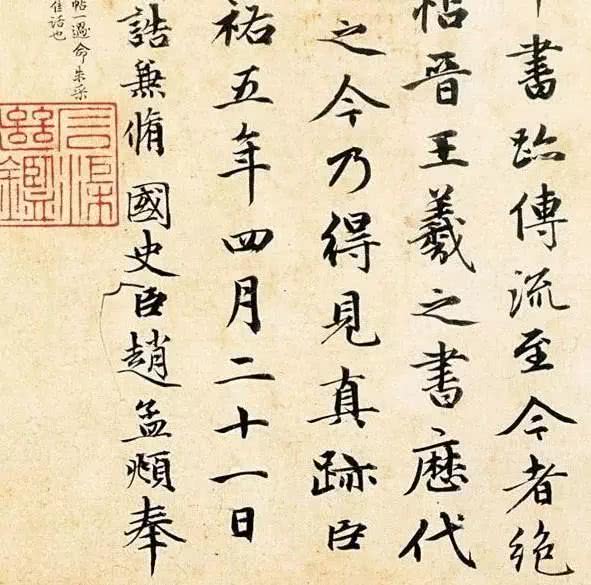 書跡傳流至今者絕
帖晉王羲之書歷代
之今乃得見真跡臣
祐五年四月二十一日
誥兼脩國史臣趙孟頫奉
帖一過命
佳話也
石渠繼鑑